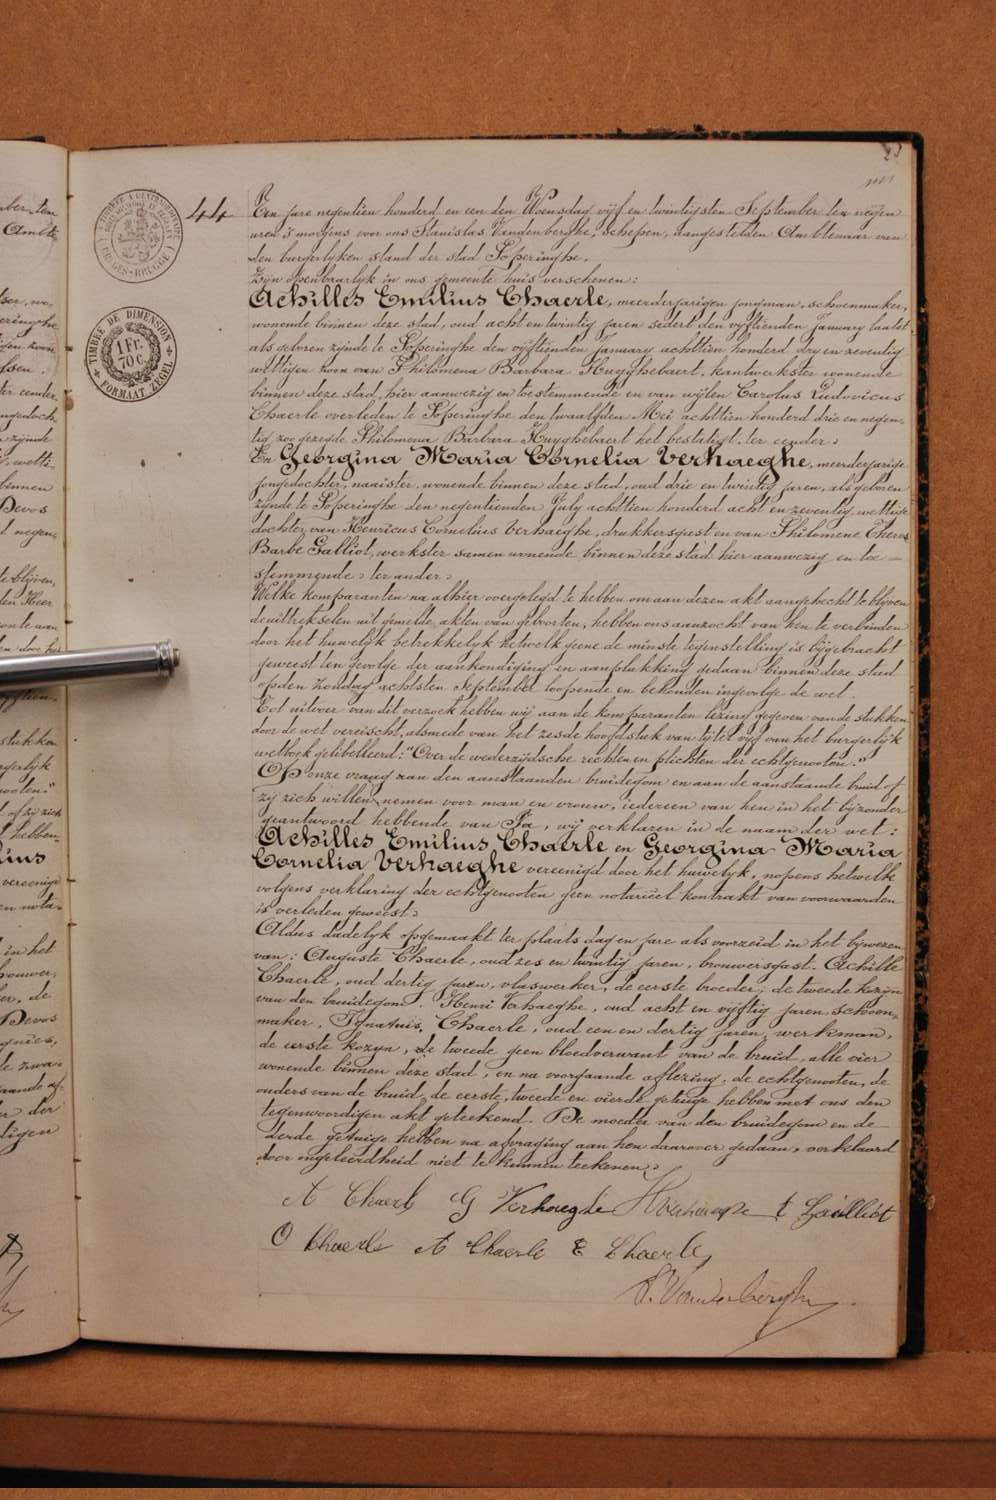 23
44
Een jare negentien honderd en een den Woensdag vijf en twintigsten September ten negen
uren 's morgens voor ons Stanislas Vandenberghe, schepen, aangestelden Ambtenaar van
den burgerlyken stand der stad Poperinghe.
Zyn openbaarlyk in ons gemeente huis verschenen:
Achilles Emilius Chaerle, meerderjarigen jongman, schoenmaker,
wonende binnen deze stad, oud acht en twintig jaren sedert den vyftienden January laatst
als geboren zynde te Poperinghe den vyftienden January achttien honderd dry en zeventig
wettigen zoon van Philomena Barbara Huyghebaert, kantwerkster wonende
binnen deze stad, hier aanwezig en toestemmende en van wylen Carolus Ludovicus
Chaerle overleden te Poperinghe den twaalfden Mei achttien honderd drie en negen-
tig zoo gezegde Philomena Barbara Huyghebaert het bestatigt. ter eender:
En Georgina Maria Cornelia Verhaeghe, meerderjarige
jongedochter, naaister, wonende binnen deze stad, oud drie en twintig jaren, als geboren
zynde te Poperinghe den negentienden July achttien honderd acht en zeventig wettige
dochter van Henricus Cornelius Verhaeghe, drukkersgast en van Philomene Therese
Barbe Galliot, werkster samen wonende binnen deze stad hier aanwezig en toe-
stemmende: ter ander:
Welke komparanten na alhier overgelegd te hebben om aan dezen akt aangehecht te blyven
de uittrekselen uit gemelde akten van geboorten, hebben ons aanzocht van hen te verbinden
door het huwelyk betrekkelyk hetwelk geene de minste tegenstelling is bygebracht
geweest ten gevolge der aankondiging en aanplakking gedaan binnen deze stad
op den zondag achtsten September loopende en behouden ingevolge de wet.
Tot uitvoer van dit verzoek hebben wy aan de komparanten lezing gegeven van de stukken
door de wet vereischt, alsmede van het zesde hoofdstuk van tytel vyf van het burgerlyk
wetboek gelibelleerd: "Over de wederzydsche rechten en plichten der echtgenooten."
Op onze vraag aan den aanstaanden bruidegom en aan de aanstaande bruid of
zy zich willen nemen voor man en vrouw, iedereen van hen in het byzonder
geantwoord hebbende van Ja, wy verklaren in de naam der wet:
Achilles Emilius Chaerle en Georgina Maria
Cornelia Verhaeghe vereenigd door het huwelyk, nopens hetwelk
volgens verklaring der echtgenooten geen notariëel kontrakt van voorwaarden
is verleden geweest:
Aldus dadelyk opgemaakt ter plaats dag en jare als voorzeid in het bywezen
van: Auguste Chaerle, oud zes en twintig jaren, brouwersgast. Achille
Chaerle, oud dertig jaren, vlaswerker, de eerste broeder, de tweede kozyn
van den bruidegom. Henri Verhaeghe, oud acht en vyftig jaren, schoen-
maker, Ignatius, Chaerle, oud een en dertig jaren, werkman,
de eerste kozyn, de tweede geen bloedverwant van de bruid, alle vier
wonende binnen deze stad, en na voorgaande aflezing, de echtgenooten, de
ouders van de bruid, de eerste, tweede en vierde getuige hebben met ons den
tegenwoordigen akt geteekend. De moeder van den bruidegom en de
derde getuige hebben na afvraging aan hen daarover gedaan, verklaard
door ongeleerdheid niet te kunnen teekenen:
A Chaerle G Verhaeghe H verhaeghe t Gailliot
O Chaerle A Chaerle E Chaerle
S. Vandenberghe
TIMBRE DE DIMENSION
1 Fr.
70 C.
FORMAAT ZEGEL
(BRUGES-BRUGGE)